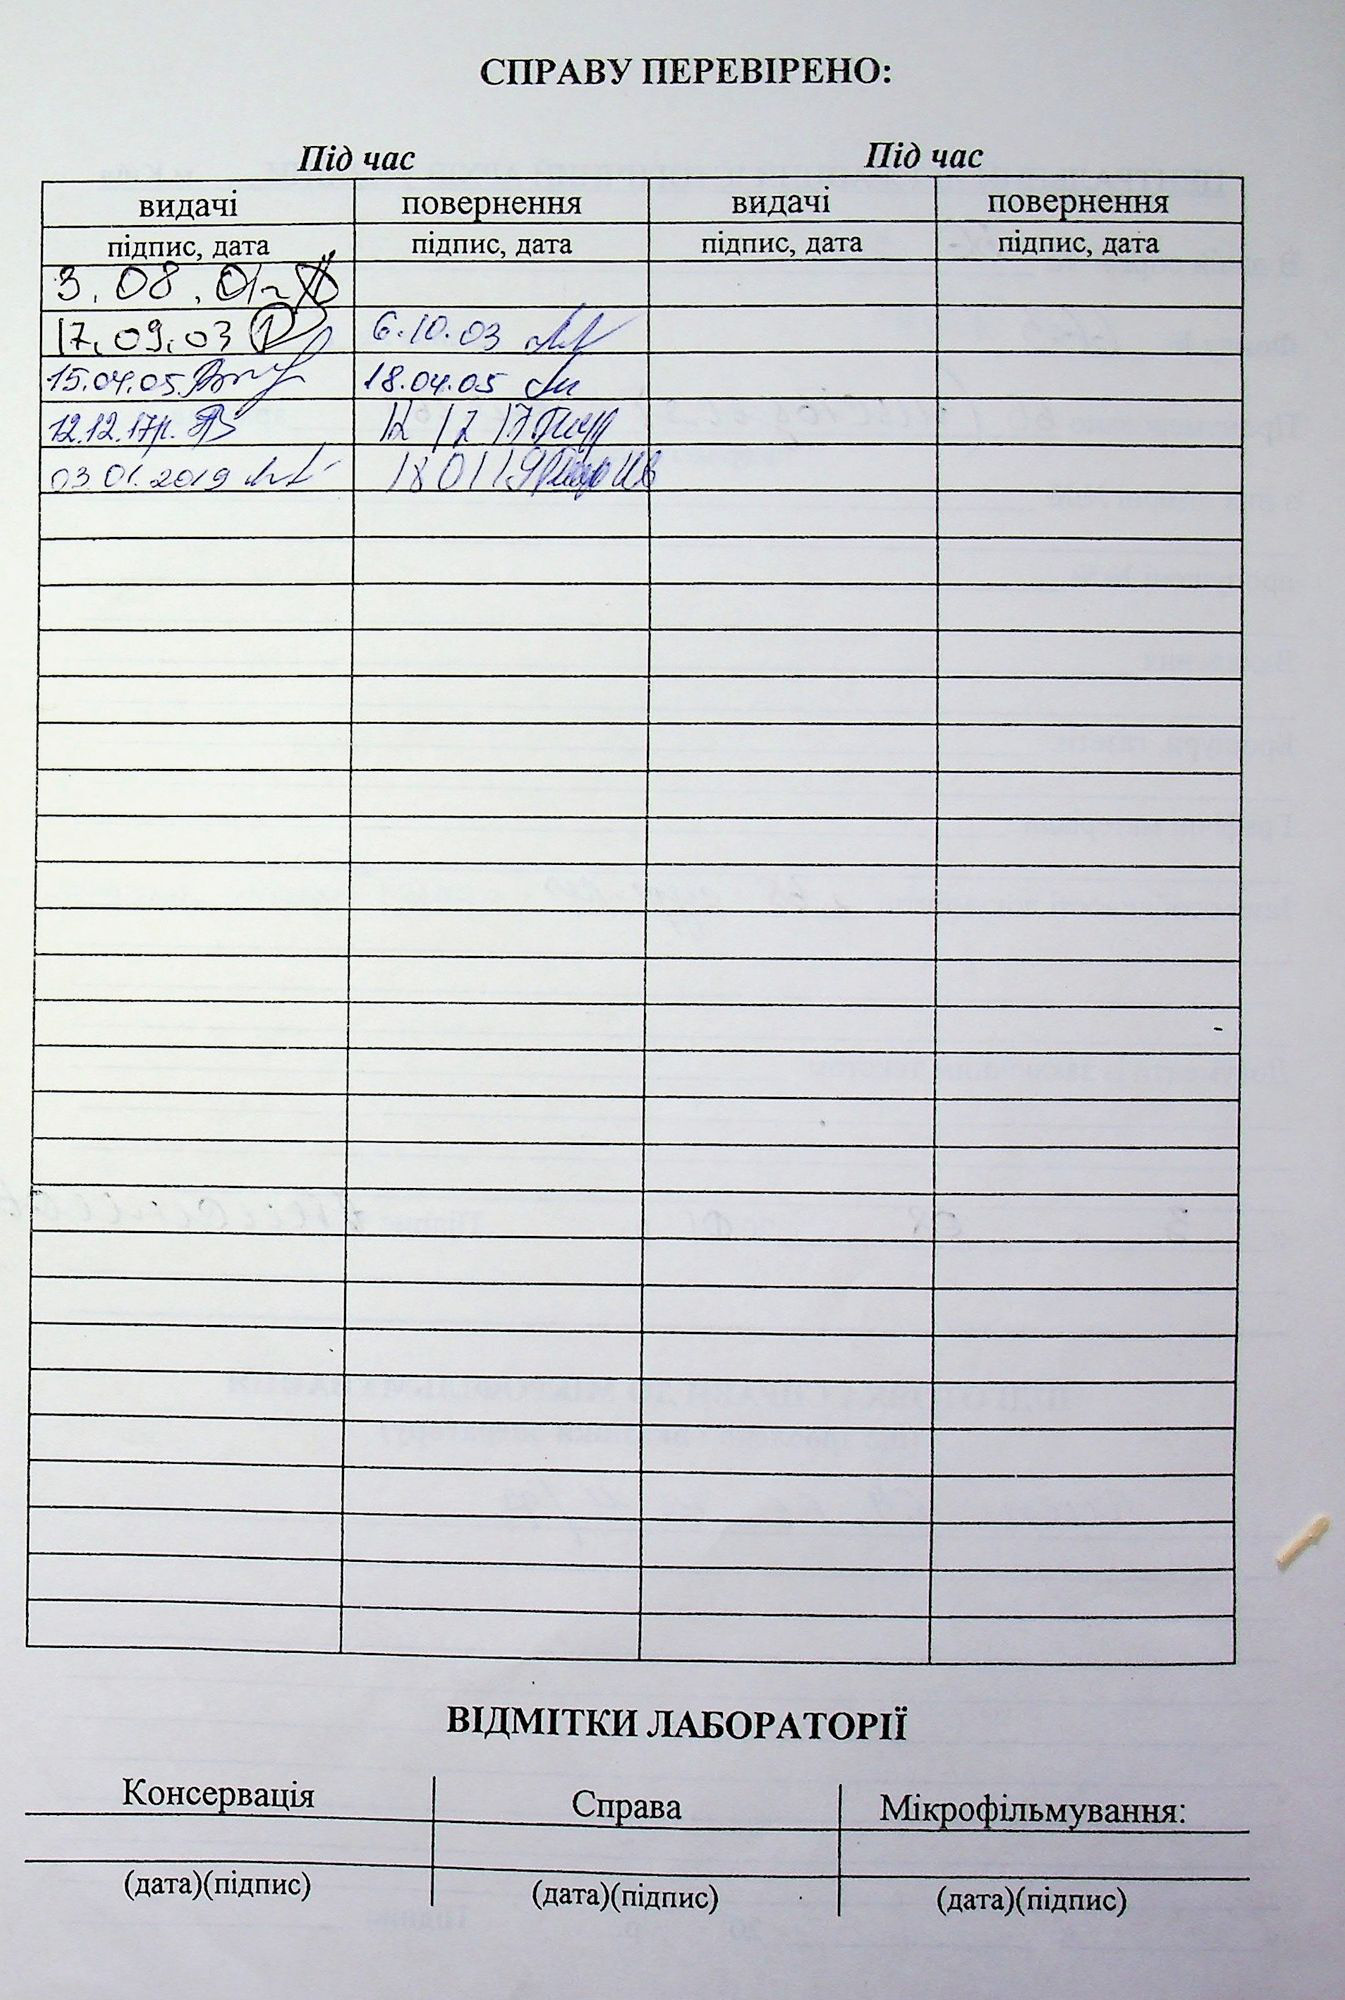 СПРАВУ ПЕРЕВІРЕНО:
Під час Під час
видачі повернення видачі повернення
підпис, дата підпис, дата підпис, дата підпис, дата
3.08.01
17.09.03 6.10.03
15.04.05 18.04.05
12.12.17р. 12 12 17
03.01.2019 18 01 19
ВІДМІТКИ ЛАБОРАТОРІЇ
Консервація Справа Мікрофільмування:
(дата)(підпис) (дата)(підпис) (дата)(підпис)